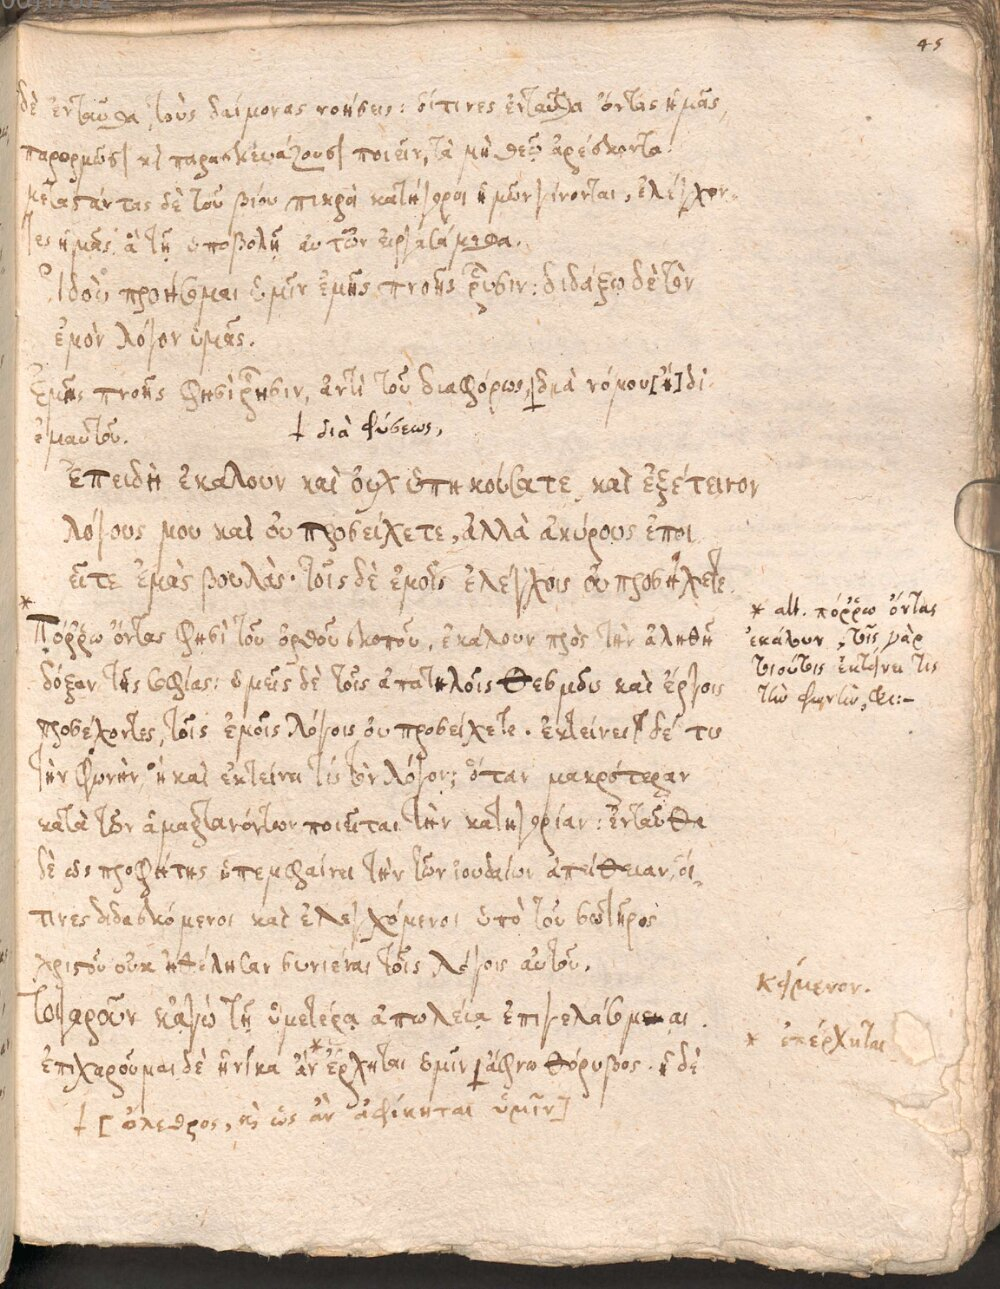 45
δὲ ἐνταῦθα τοὺς δαίμονας νοήσεις: οἵτινες ἐνταῦθα ὄντας ἡμᾶς
παρορμῶσι κὶ παρασκευάζουσι ποιεῖν, τὰ μὴ θεῷ ἀρέσκοντα
μεταστάντας δὲ τοῦ βίου πικροὶ κατήγοροι ἡμῶν γίνονται, ἐλέγχον-
τες ἡμᾶς ἃ τῇ ὑποβολῇ αὐτῶν εἰργασάμεθα.
Ἰδοὺ προήσομαι ὑμῖν ἐμῆς πνοῆς ῥῆσιν: διδάξω δὲ τὸν
ἐμὸν λόγον ὑμᾶς.
Ἐμῆς πνοῆς φησὶ ῥῆσιν, ἀντὶ τοῦ διαφόρως, διὰ νόμου [ἢ] δι'
ἐμαυτοῦ.
† διὰ φύσεως,
Ἐπειδὴ ἐκάλουν καὶ οὐχ ὑπηκούσατε καὶ ἐξέτεινον
λόγους μου καὶ οὐ προσείχετε, ἀλλὰ ἀκύρους ἐποι
εῖτε ἐμὰς βουλὰς· τοῖς δὲ ἐμοῖς ἐλέγχοις οὐ προσήχετε
* Πόῤῥω ὄντας φησὶ τοῦ ὀρθοῦ σκοποῦ, ἐκάλουν πρὸς τὴν ἀληθῆ
δόξαν τῆς σοφίας: ὑμεῖς δὲ τοῖς ἀπατηλοῖς θεοῖς καὶ ἔργοις
προσέχοντες, τοῖς ἐμοῖς λόγοις οὐ προσείχετε. ἐκτείνει δέ τις
τὴν φωνὴν ἢ καὶ ἐκτείνει τίς τὸν λόγον; ὅταν μακρότεραν
κατὰ τῶν ἁμαρτανόντων ποιεῖται τὴν κατηγορίαν: ἐνταῦθα
δὲ ὡς προφήτης ὑπεμφαίνει τὴν τῶν ἰουδαίων ἀπείθειαν, οἵ
τινες διδασκόμενοι καὶ ἐλεγχόμενοι ὑπὸ τοῦ σωτῆρος
χριστοῦ οὐκ ἠθέλησαν συνιέναι τοῖς λόγοις αὐτοῦ.
Τοιγαροῦν κἀγὼ τῇ ὑμετέρᾳ ἀπωλείᾳ ἐπιγελάσομαι.
ἐπιχαροῦμαι δὲ ἡνίκα ἂν * ἔρχηται ὑμῖν † ἄφνω θόρυβος· ἡ δὲ
† [ὄλεθρος, κὶ ὡς ἂν ἀφίκηται ὑμῖν]
* alt. πόῤῥω ὄντας
ἐκάλουν, τοῖς γὰρ
τοιούτοις ἐκτείνει τις
τὴν φωνὴν, &c:-
κείμενον.
* ἐπέρχηται